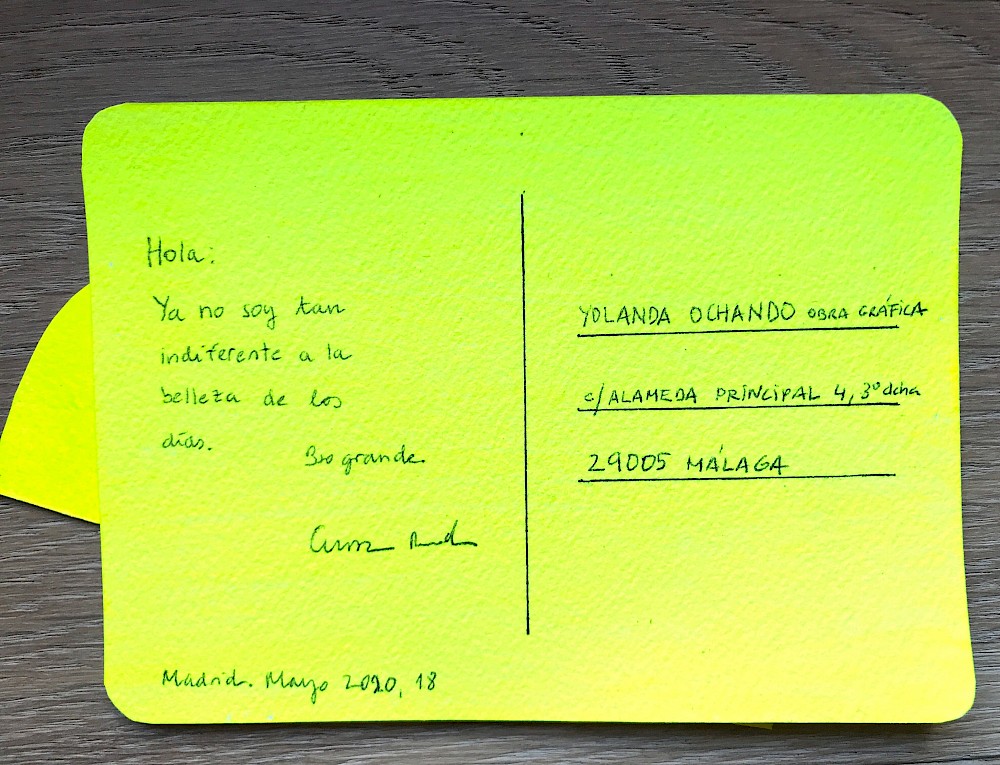 Hola:
Ya no soy tan
indiferente a la
belleza de los
días.
Bso grande.
Madrid. Mayo 2020, 18
YOLANDA OCHANDO OBRA GRÁFICA
c/ALAMEDA PRINCIPAL 4, 3º dcha
29005 MÁLAGA